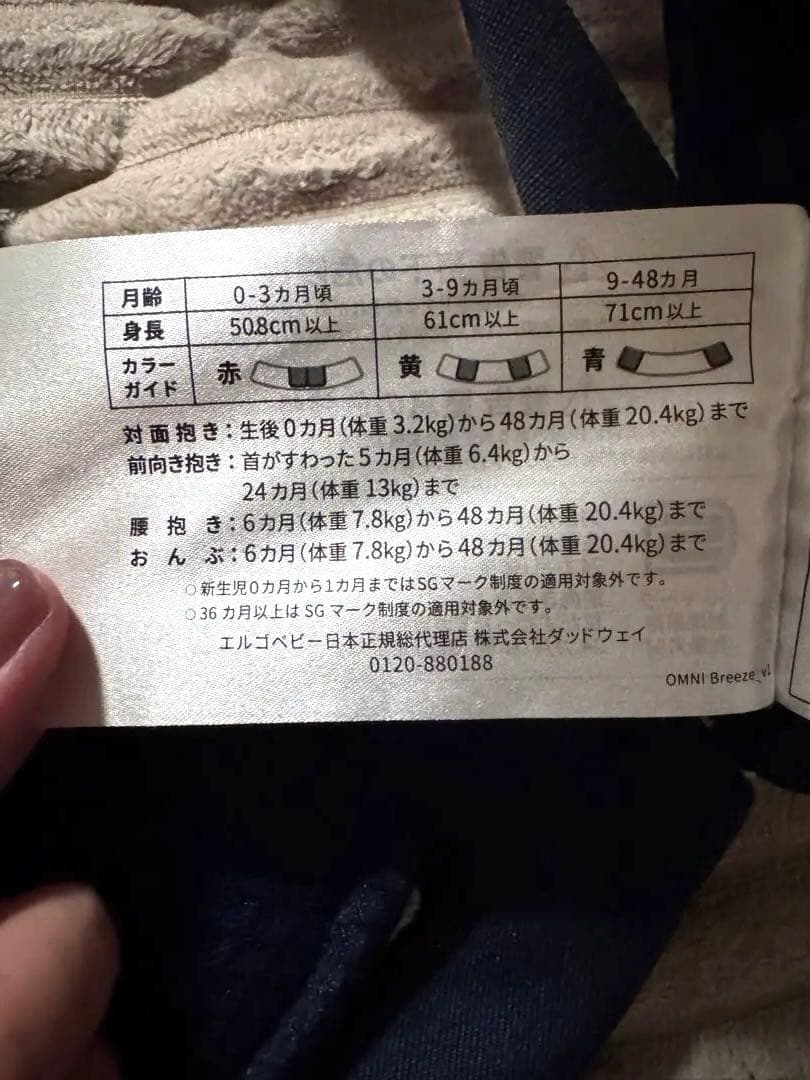 月齢 0-3カ月頃 3-9カ月頃 9-48カ月
身長 50.8cm以上 61cm以上 71cm以上
カラーガイド 赤 黄 青
対面抱き：生後0カ月（体重3.2kg）から48カ月（体重20.4kg）まで
前向き抱き：首がすわった5カ月（体重6.4kg）から
24カ月（体重13kg）まで
腰抱き：6カ月（体重7.8kg）から48カ月（体重20.4kg）まで
おんぶ：6カ月（体重7.8kg）から48カ月（体重20.4kg）まで
○新生児0カ月から1カ月まではSGマーク制度の適用対象外です。
○36カ月以上はSGマーク制度の適用対象外です。
エルゴベビー日本正規総代理店 株式会社ダッドウェイ
0120-880188
OMNI Breeze_v1